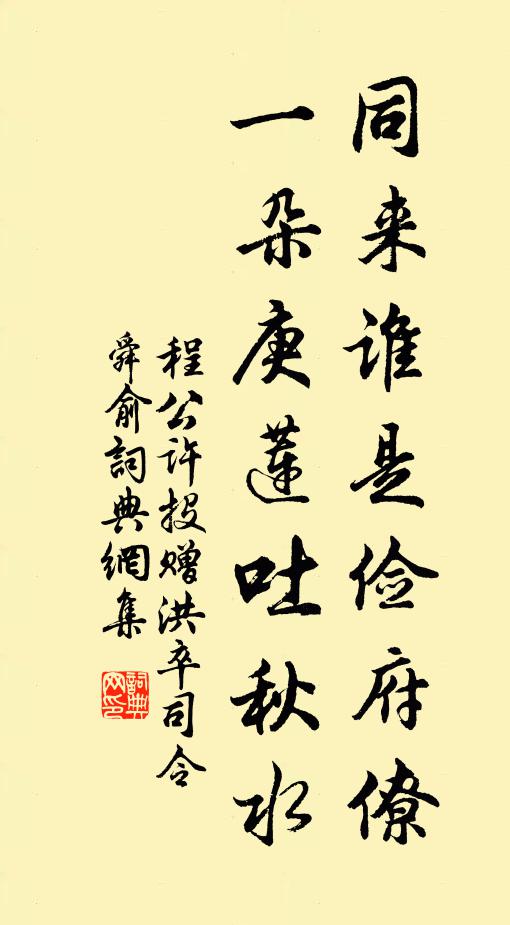 同来谁是俭府僚
一朵庚莲吐秋水
程公许投赠洪卒司令
舜俞詞典網集
詞典
网印